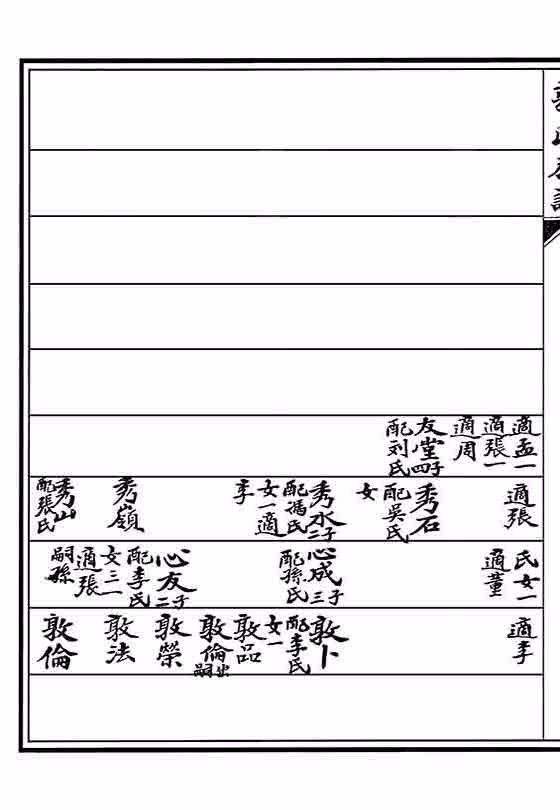 適孟一
適張一
適周
友堂四子
配刘氏
適張
秀石
配吳氏
女
秀水二子
配馮氏
女一適
李
秀嶺
秀山
配張氏
氏女一
適董
心成三子
配孫氏
心友二子
配李氏
女三一
適張
嗣孫
適李
敦卜
配李氏
女一
敦品
敦倫出嗣
敦榮
敦法
敦倫